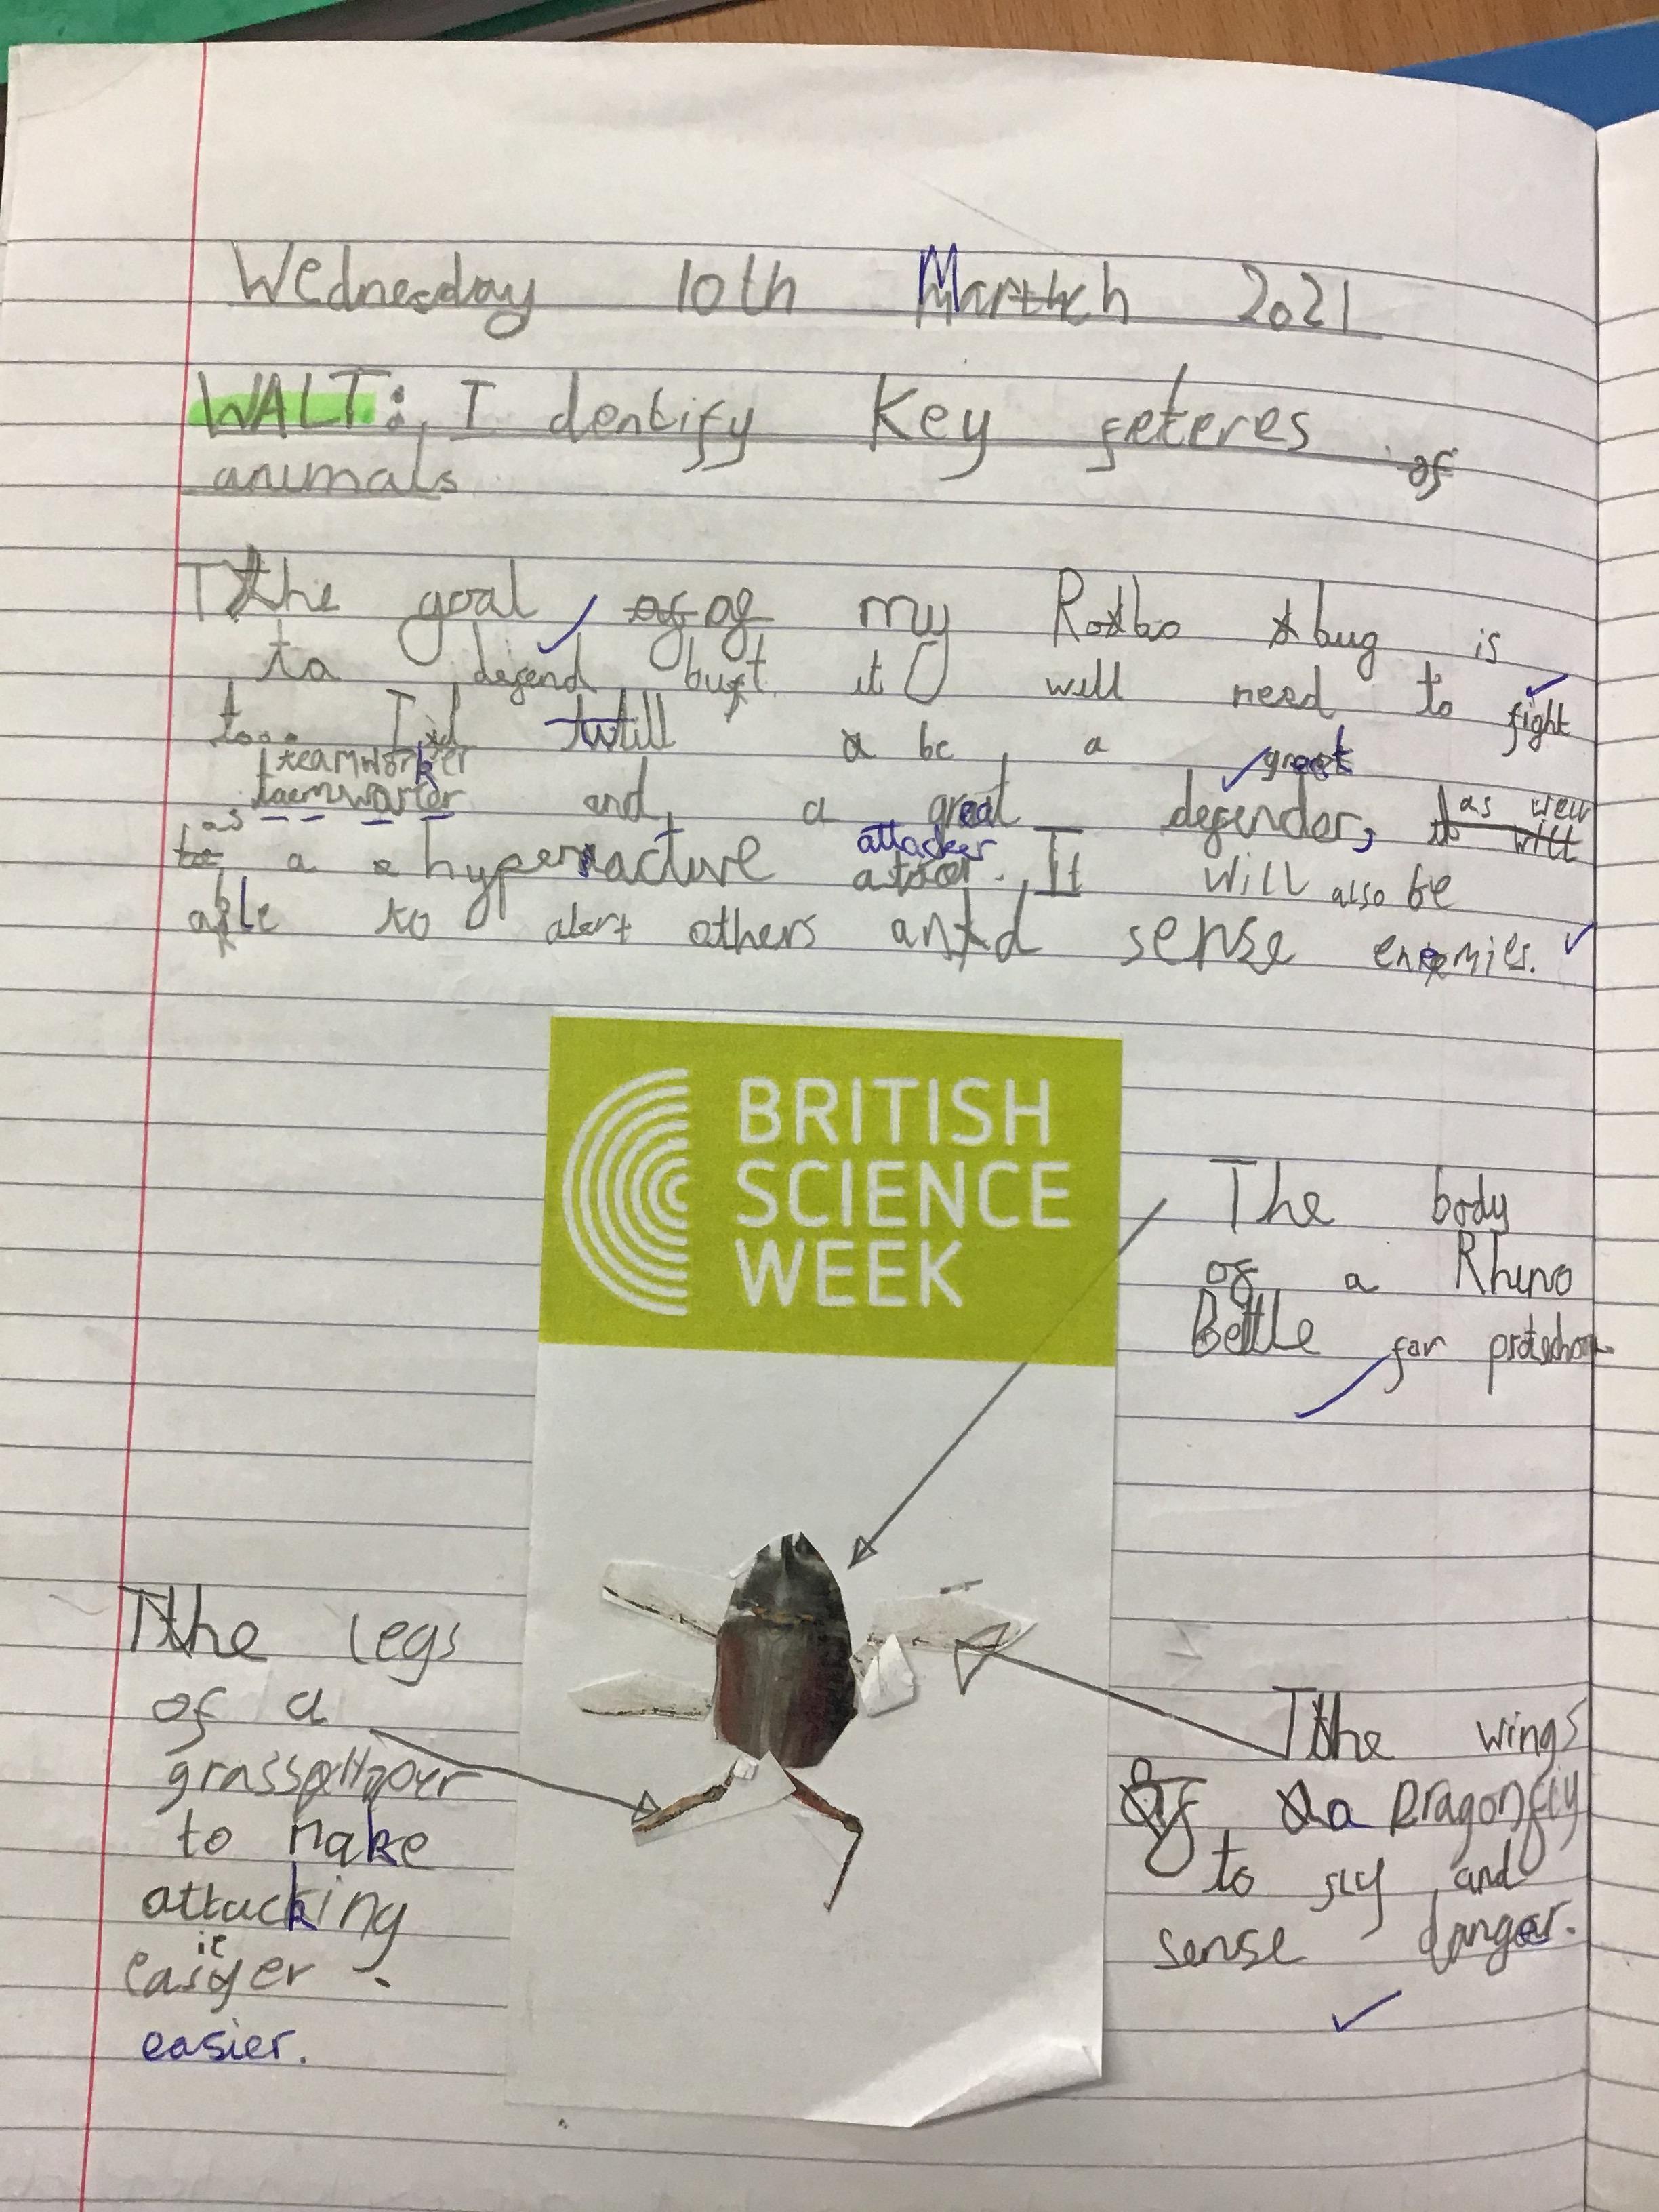 Wednesday 10th March 2021
WALT: I dentify Key feteres of
animals
The goal of my Robo bug is
to defend but it will need to fight
to... It will be a great
teamworker
taemwarter and a great defender, as well
as a hyperactive attacker. It will also be
able to alert others and sense enemies.
BRITISH
SCIENCE
WEEK
The body
of a Rhino
Bettle for protection
The legs
of a
grasshopper
to make
attacking
easier
easier.
The wings
of a Dragonfly
to fly and
sense danger.